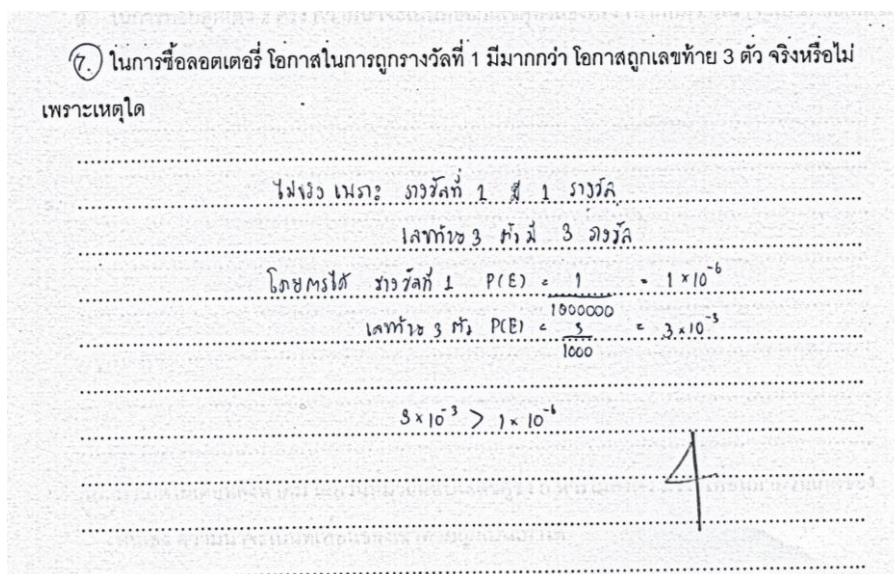 7. ในการซื้อลอตเตอรี่ โอกาสในการถูกรางวัลที่ 1 มีมากกว่า โอกาสถูกเลขท้าย 3 ตัว จริงหรือไม่
เพราะเหตุใด
ไม่จริง เพราะ รางวัลที่ 1 มี 1 รางวัล
เลขท้าย 3 ตัว มี 3 รางวัล
โอกาสได้ รางวัลที่ 1 P(E) = 1/1000000 = 1 × 10⁻⁶
เลขท้าย 3 ตัว P(E) = 3/1000 = 3 × 10⁻³
3 × 10⁻³ > 1 × 10⁻⁶
4